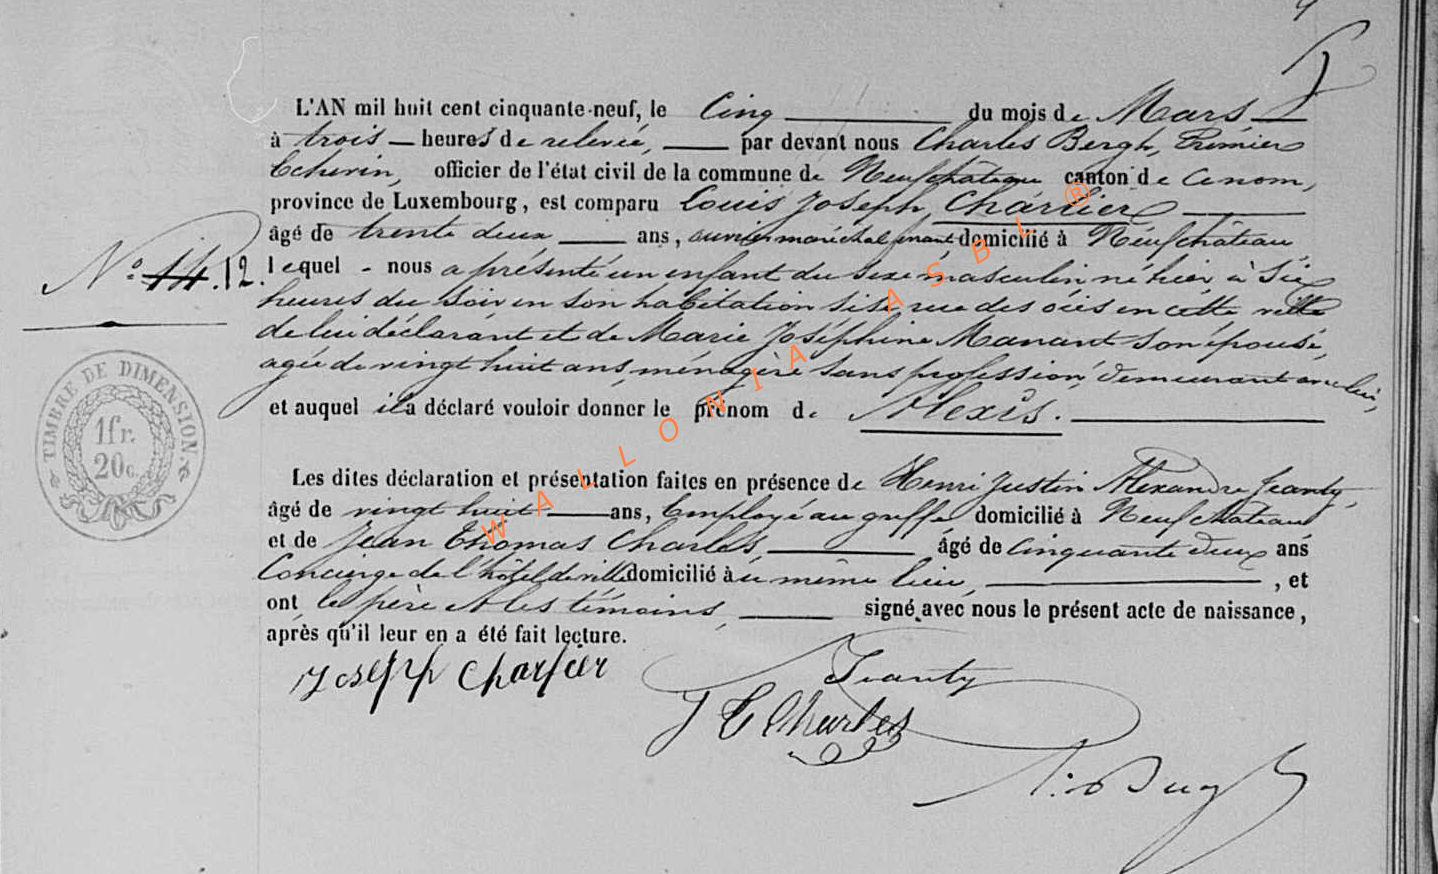 L'AN mil huit cent cinquante-neuf, le Cinq du mois de Mars
à trois heures de relevée, par devant nous Charles Bergh, Premier
Echevin, officier de l'état civil de la commune de Neufchateau canton de ce nom,
province de Luxembourg, est comparu Louis Joseph Charlier
âgé de trente deux ans, ouvrier maréchal ferrant domicilié à Neufchâteau,
N° 11. 12.
lequel - nous a présenté un enfant du sexe masculin né hier, à Six
heures du Soir en son habitation sise rue des oies en cette ville
de lui déclarant et de Marie Joséphine Manant son épouse,
agée de vingt huit ans, ménagère sans profession, demeurant avec lui,
et auquel il a déclaré vouloir donner le prénom de Alexis.
TIMBRE DE DIMENSION.
1fr.
20c.
Les dites déclaration et présentation faites en présence de Henri Justin Alexandre Jeanty,
âgé de vingt huit ans, Employé au greffe domicilié à Neufchateau
et de Jean Thomas Charles, âgé de Cinquante deux ans
Concierge de l'hôtel de ville domicilié au même lieu, , et
ont le père et les témoins, signé avec nous le présent acte de naissance,
après qu'il leur en a été fait lecture.
Joseph Charlier
Jeanty
J T Charles
WALLONIA ASBL ®